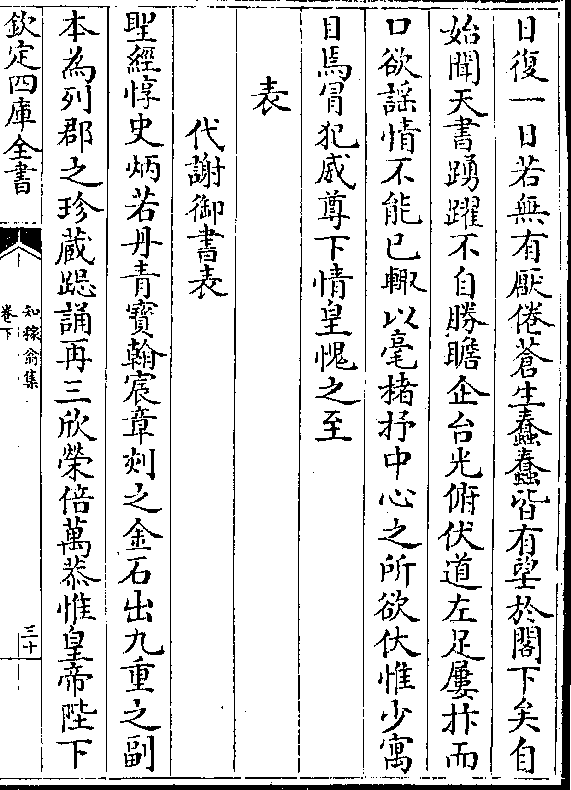 日復一日若無有厭倦蒼生蠢蠢皆有望於閣下矣自
始聞天書踴躍不自勝瞻企台光俯伏道左足屢抃而
口欲謡情不能已輙以毫楮抒中心之所欲伏惟少寓
目焉冒犯威尊下情皇愧之至
表
代謝御書表
聖經惇史炳若丹青寶翰宸章刻之金石出九重之副
本為列郡之珍蔵跽誦再三欣榮倍萬恭惟皇帝陛下
欽定四庫全書
知稼翁集
卷下
三十